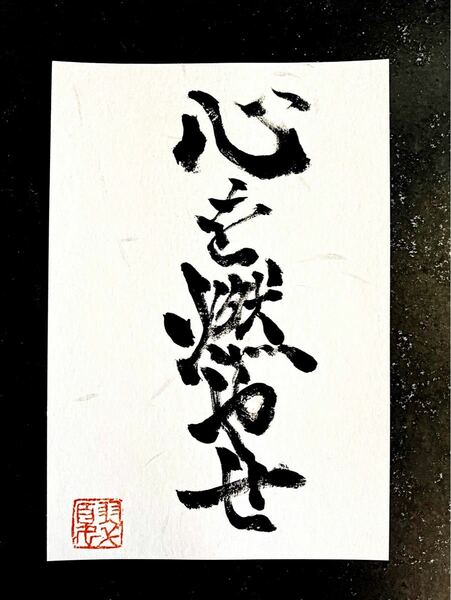 心を燃やせ